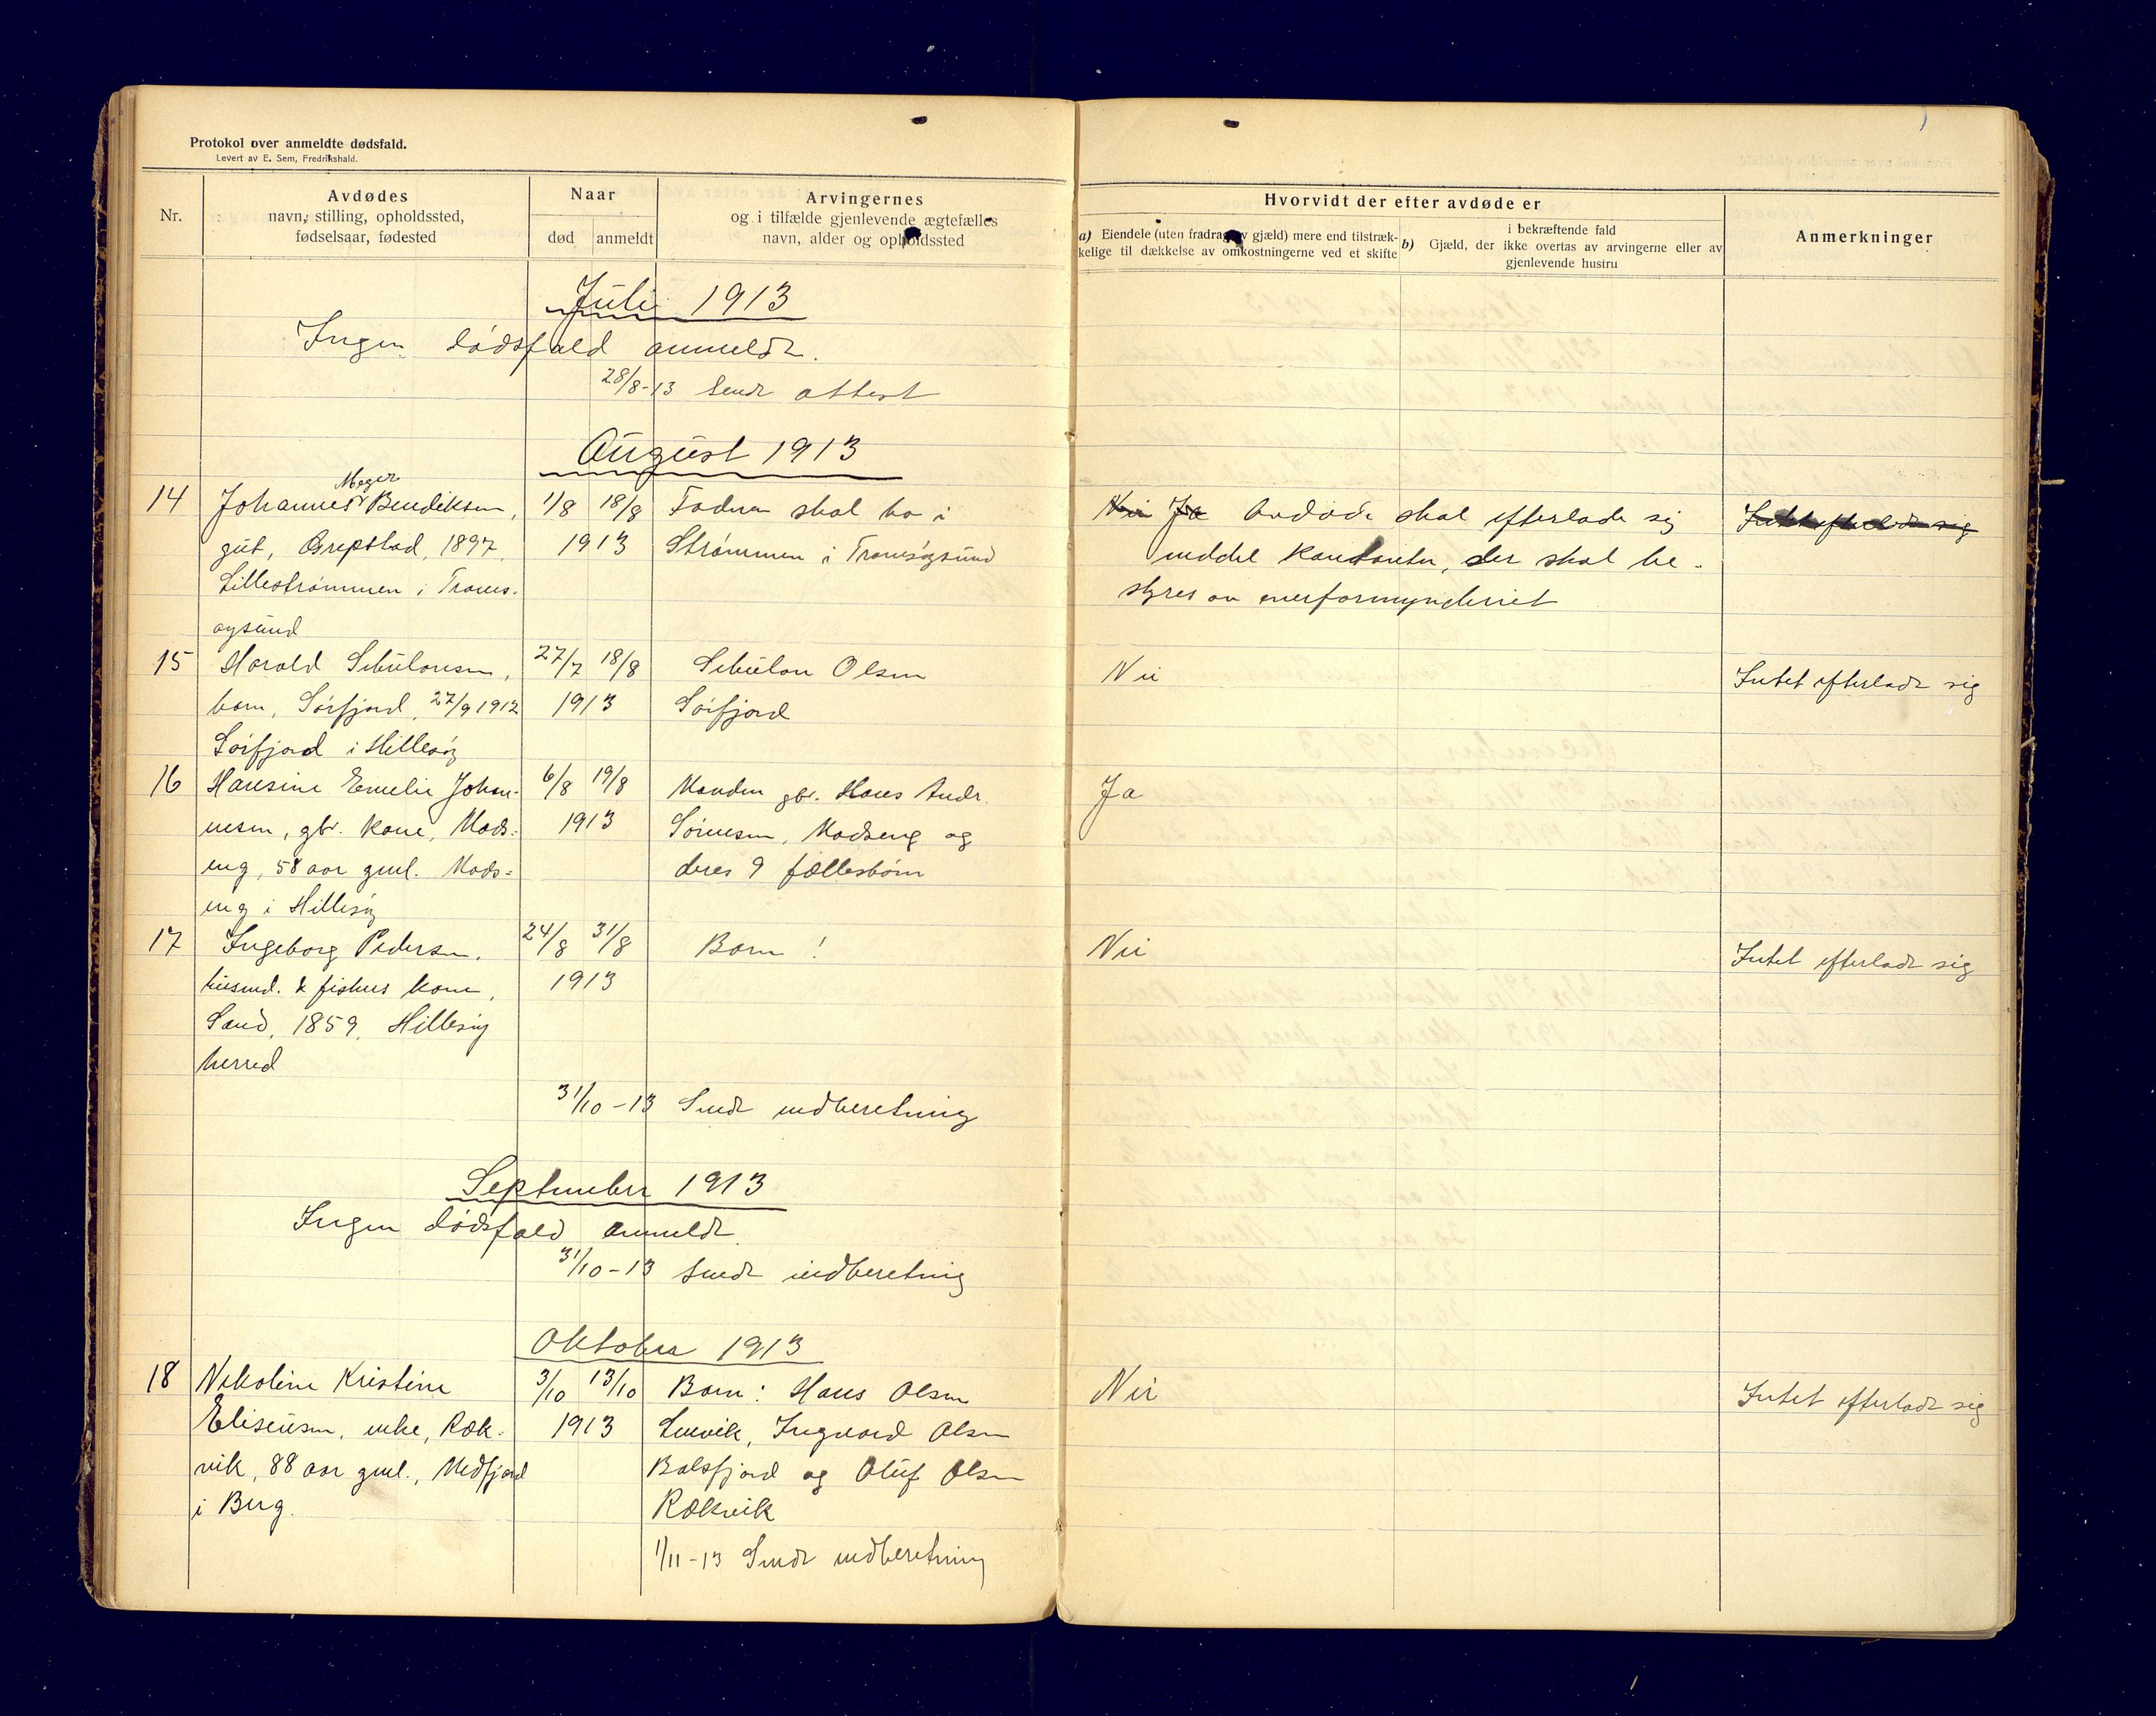 Protokol over anmeldte dødsfald.
Levert av E. Sem, Fredrikshald.
Nr.
Avdødes
navn, stilling, opholdssted,
fødselsaar, fødested
Naar
død anmeldt
Arvingernes
og i tilfælde gjenlevende ægtefælles
navn, alder og opholdssted
Hvorvidt der efter avdøde er
a) Eiendele (uten fradrag av gjæld) mere end tilstræk-
kelige til dækkelse av omkostningerne ved et skifte
i bekræftende fald
b) Gjæld, der ikke overtas av arvingerne eller av
gjenlevende hustru
Anmerkninger
Juli 1913
Ingen dødsfald anmeldt.
28/8-13 Sendt attest
August 1913
Meyer
14 Johannes Bendiksen, 1/8 18/8 Faderen skal bo i Nei Ja Avdøde skal efterlade sig
gut, Grepstad, 1897, 1913 Strømmen i Tromsøysund meddel kontanter, der skal be-
Lillestrømmen i Troms- styres av overformynderiet
øysund
15 Harald Sebulonsen, 27/7 18/8 Sebulon Olsen Nei Intet efterladt sig
barn, Sørfjord, 27/9 1912 1913 Sørfjord
Sørfjord i Hillesøy
16 Hansine Emelie Johan- 6/8 19/8 Manden gbr. Hans Andr. Ja
nesen, gbr. kone, Mads- 1913 Sørensen, Madseng og
eng, 58 aar gml. Mads- deres 9 fællesbørn
eng i Hillesøy
17 Ingeborg Pedersen, 24/8 31/8 Barn! Nei Intet efterladt sig
husmd. & fiskers kone, 1913
Sand, 1859, Hillesøy
herred
31/10-13 Sendt indberetning
September 1913
Ingen dødsfald anmeldt.
31/10-13 Sendt indberetning
Oktober 1913
18 Nikoline Kristine 3/10 13/10 Barn: Hans Olsen Nei Intet efterladt sig
Eliseusen, enke, Ræk- 1913 Lenvik, Ingvard Olsen
vik, 88 aar gml., Medfjord Balsfjord og Oluf Olsen
i Berg. Rækvik
1/11-13 Sendt indberetning